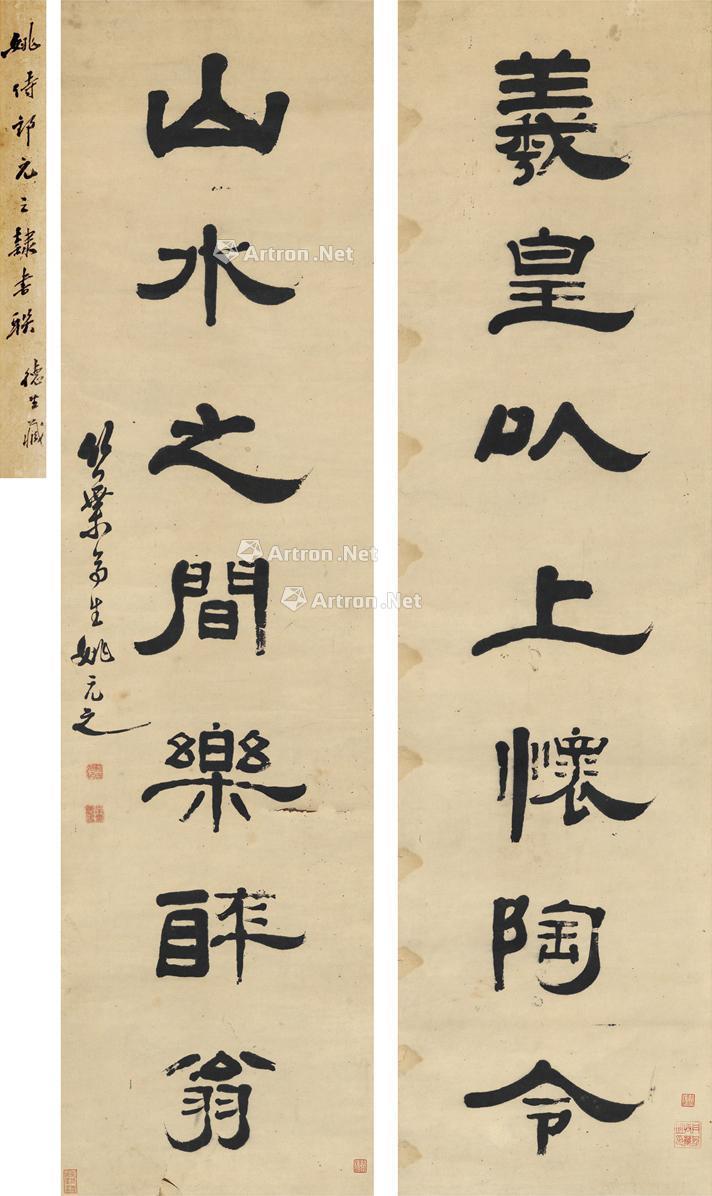 羲皇㕥上懷陶令
山水之間樂醉翁
竹葉亭生姚元之
姚侍郎元之隸書聯 德生藏
Artron.Net
Artron.Net
Artron.Net